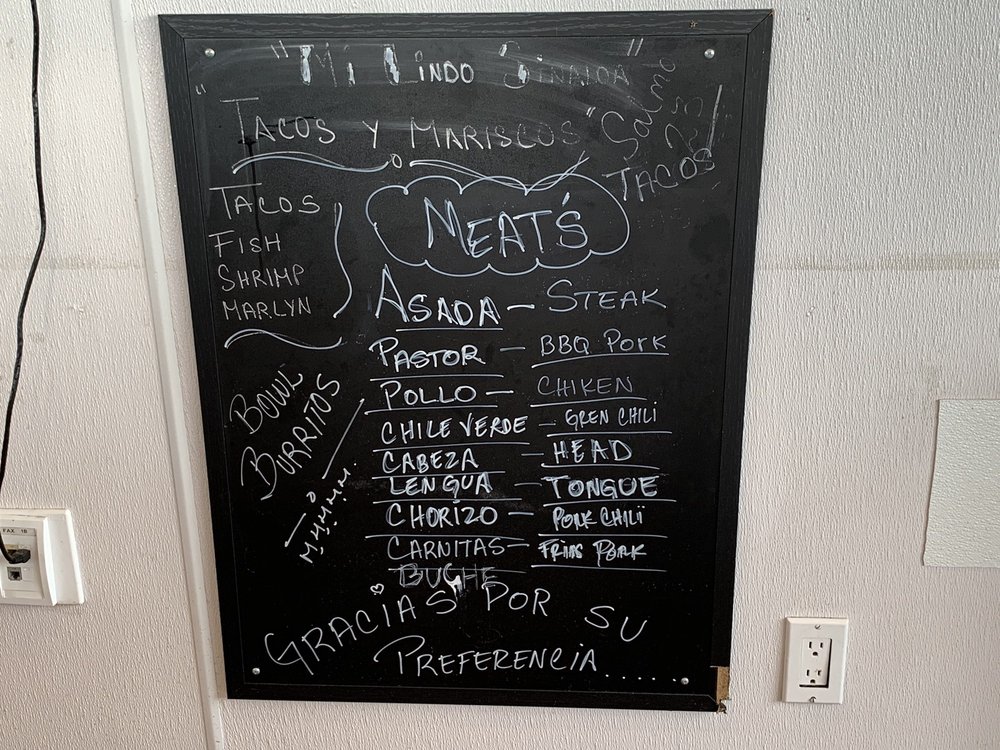 "Mi Lindo Sinaloa"
"Tacos y Mariscos"
TACOS
TACOS
FISH
SHRIMP
MARLYN
MEAT'S
ASADA — STEAK
PASTOR — BBQ PORK
POLLO — CHIKEN
CHILE VERDE — GREN CHILI
CABEZA — HEAD
LENGUA — TONGUE
CHORIZO — PORK CHILI
CARNITAS — FRIAS PORK
BUCHE
BOWL
BURRITOS
GRACIAS POR SU
PREFERENCIA......
FAX 1B